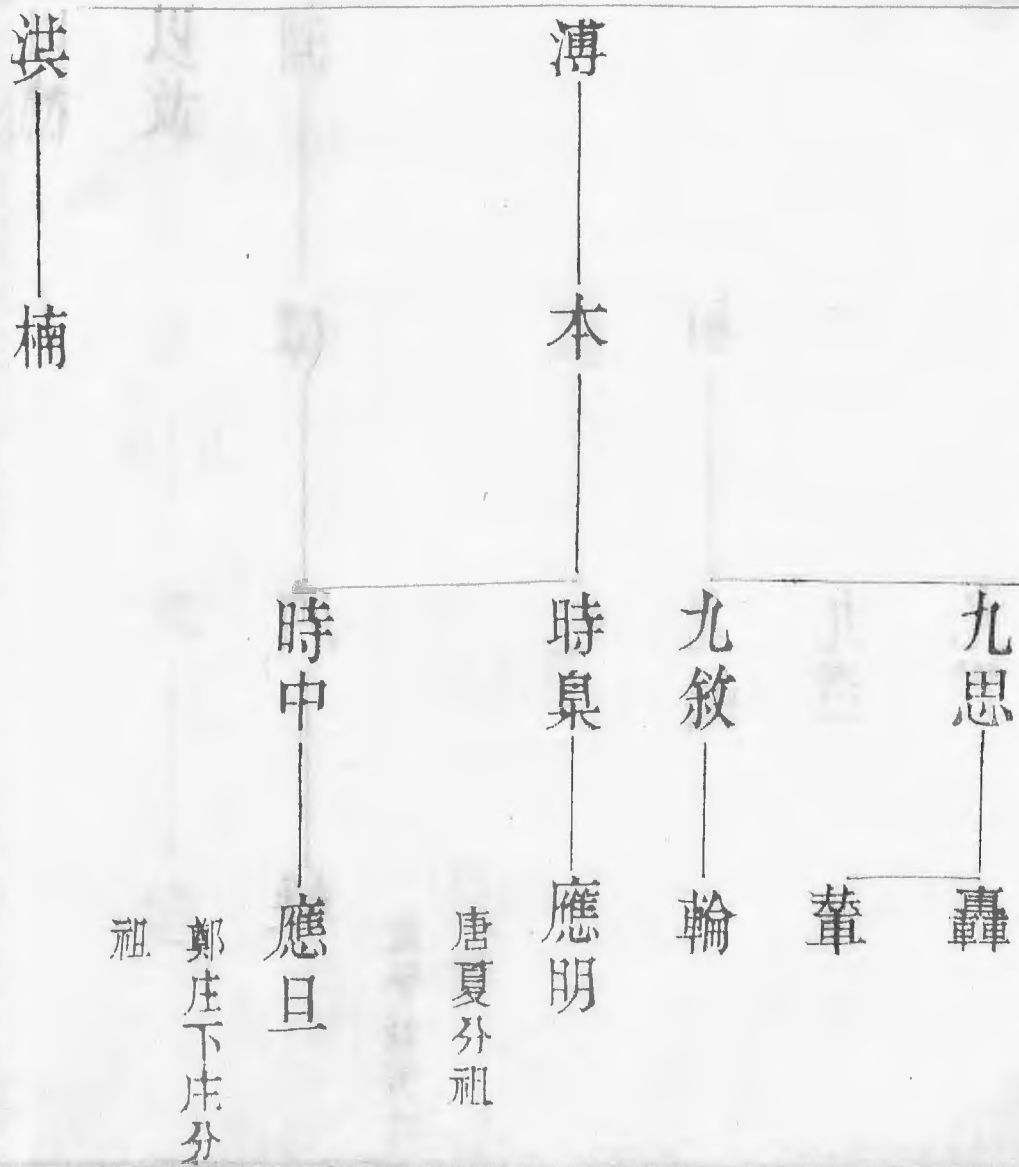 九思
轟
輦
九敘
輪
溥
本
時臬
應明
唐夏分祖
時中
應旦
鄭庄下庄分
祖
洪
楠